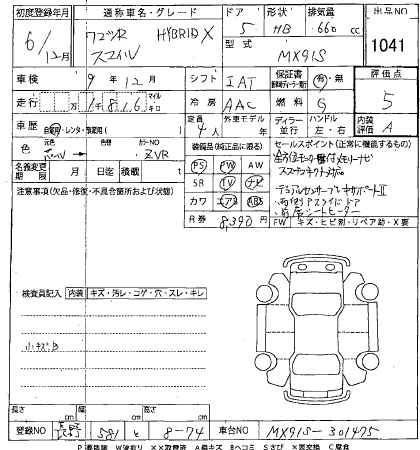 初度登録年月 通称車名・グレード ドア 形状 排気量 出品NO
6/12月 ワゴンR HYBRID X 5 HB 660 cc
スマイル 型式 MX91S 1041
車検 9年12月 シフト IAT 保証書 有・無 評価点
走行 マイル キロ 冷房 AAC 燃料 G 5
車歴 自家用・レンタ・事業用( ) 定員 4人 外車モデル ディーラー 並行 ハンドル 左・右 内装 A
色 カラーNO ZVR 装備品(純正品に限る) セールスポイント(正常に機能するもの)
PS PW AW
名義変更期限 月 日迄 積載 t SR TV ナビ
注意事項(欠品・修復・不具合箇所および状態) カワ エアB ABS
R券 8,390円
デュアルセンサーブレーキサポートⅡ
両側パワースライドドア
前席シートヒーター
FW キズ・ヒビ割・リペア跡・X要
検査員記入 内装 キズ・汚レ・コゲ・穴・スレ・キレ
小キズB
長さ cm 幅 cm 高さ cm
登録NO 長野 581 と 8-74 車台NO MX91S-301475
P 要塗装 W波有り XX取替済 Aキズ Bヘコミ Sさび ×要交換 C腐食